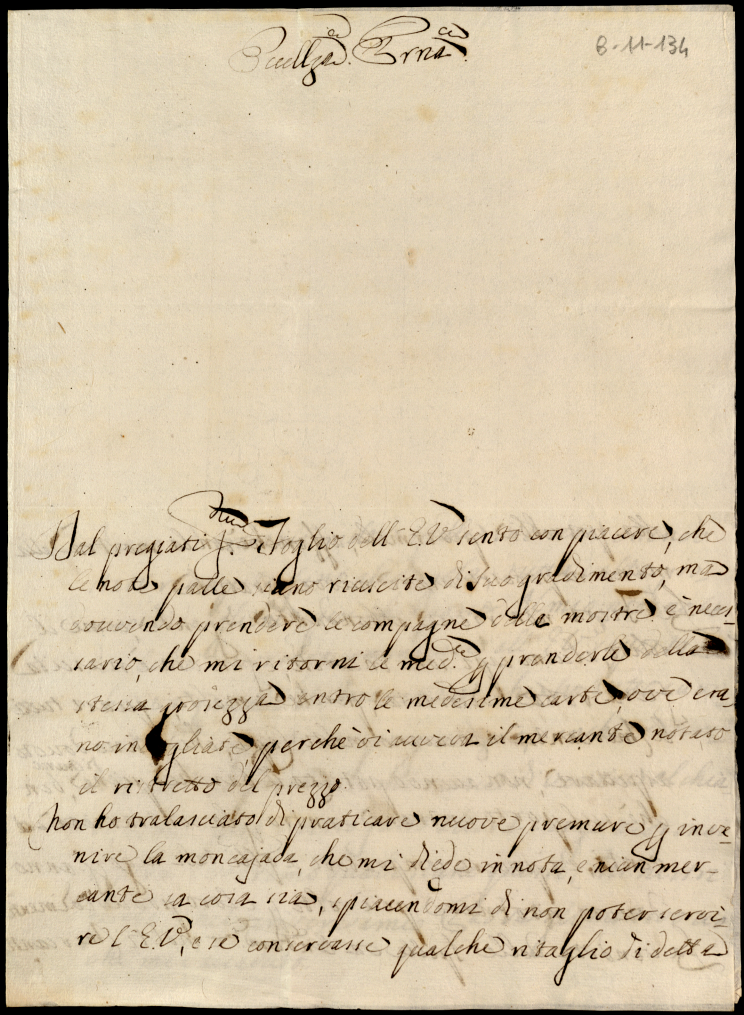 Eccell.za Pr.na
8-11-134
Dal pregiatis.mo foglio dell' E.V. sento con piacere, che
le note palle siano riuscite di suo gradimento, ma
dovendo prendere le compagne delle mostre è neces-
sario, che mi ritorni le med.e p prenderle della
stessa grosezza entro le medesime carte, ove era
no invogliate, perchè vi aveva il mercante notato
il ristretto del prezzo.
Non ho tralasciato di praticare nuove premure p inve-
nire la moncajada, che mi diede in nota, e niun mer-
cante sa cosa sia, spiacendomi di non poter servi-
re l'E.V., e se conservasse qualche ritaglio di detta